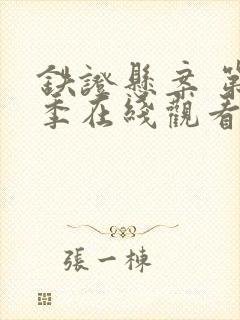 鉄證懸案 第
季在綫觀看
張一棟